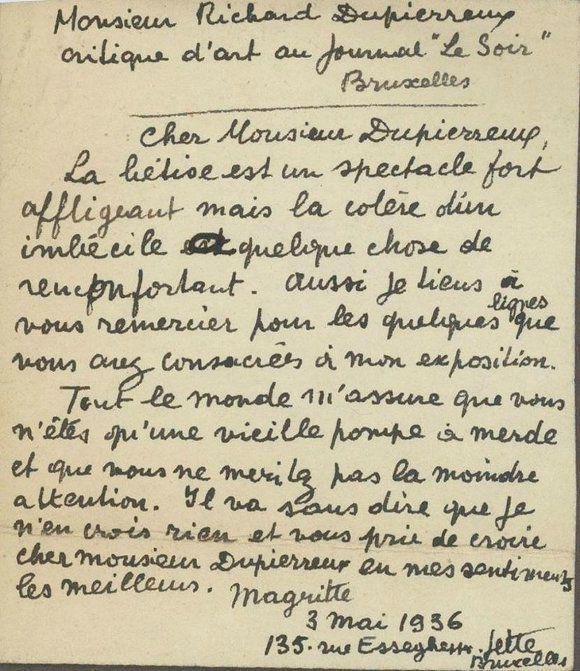 Monsieur Richard Dupierreux
critique d'art au Journal "Le Soir"
Bruxelles
Cher Monsieur Dupierreux,
La bêtise est un spectacle fort
affligeant mais la colère d'un
imbécile a quelque chose de
réconfortant. Aussi je tiens à
vous remercier pour les quelques lignes que
vous avez consacrées à mon exposition.
Tout le monde m'assure que vous
n'êtes qu'une vieille pompe à merde
et que vous ne méritez pas la moindre
attention. Il va sans dire que je
n'en crois rien et vous prie de croire
cher monsieur Dupierreux en mes sentiments
les meilleurs. Magritte
3 mai 1936
135. rue Esseghem. Jette
Bruxelles